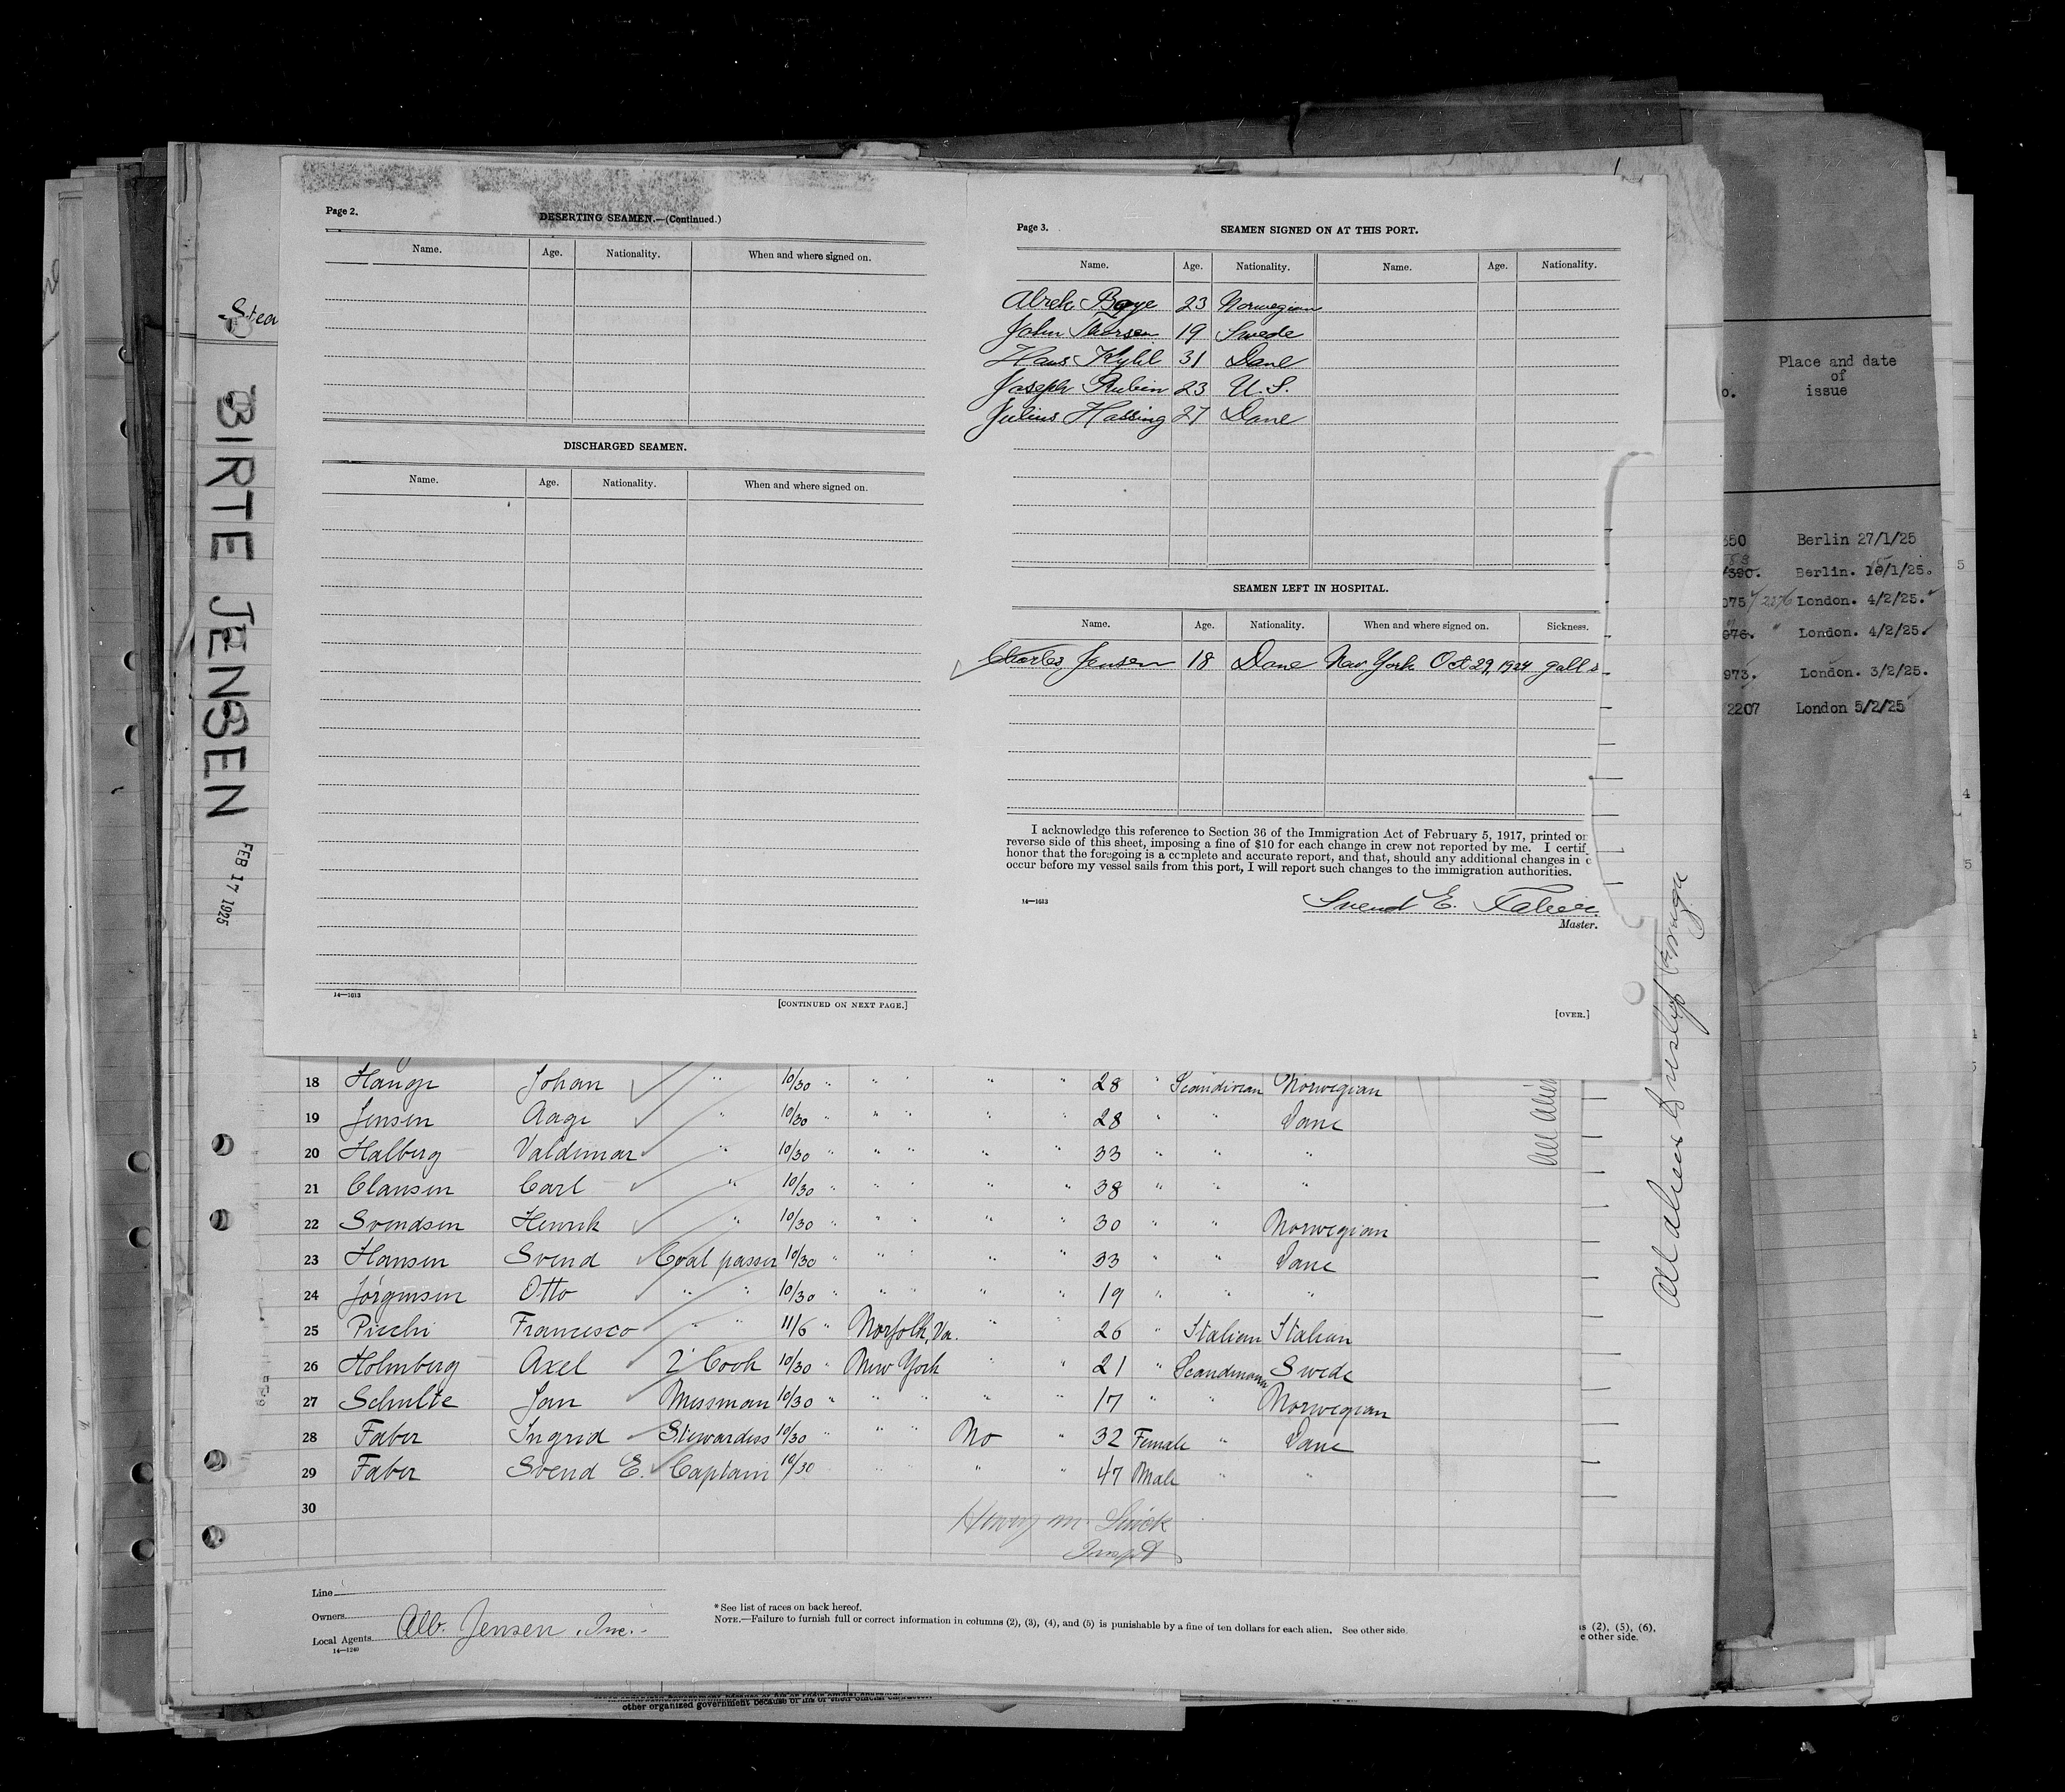 Page 2.
DESERTING SEAMEN.—(Continued.)
Name. Age. Nationality. When and where signed on.
DISCHARGED SEAMEN.
Name. Age. Nationality. When and where signed on.
14—1613
[CONTINUED ON NEXT PAGE.]
Page 3.
SEAMEN SIGNED ON AT THIS PORT.
Name. Age. Nationality. Name. Age. Nationality.
Alrek 23 Norwegian
John 19 Swede
Hans 31 Dane
Joseph Rubin 23 U. S.
Julius Hassing 27 Dane
SEAMEN LEFT IN HOSPITAL.
Name. Age. Nationality. When and where signed on. Sickness.
Charles Jensen 18 Dane New York Oct 29, 1924 gall s
I acknowledge this reference to Section 36 of the Immigration Act of February 5, 1917, printed or
reverse side of this sheet, imposing a fine of $10 for each change in crew not reported by me. I certif
honor that the foregoing is a complete and accurate report, and that, should any additional changes in c
occur before my vessel sails from this port, I will report such changes to the immigration authorities.
14—1613
Svend E. Faber
Master.
[OVER.]
Stea
BIRTE JENSEN
FEB 17 1925
18 Hauge Johan " 10/30 " " " " " 28 " Scandivian Norwegian
19 Jensen Aage " 10/30 " " " " " 28 " " Dane
20 Halberg Valdemar " 10/30 " " " " " 33 " " "
21 Clausen Carl " 10/30 " " " " " 38 " " "
22 Svendsen Henrik " 10/30 " " " " " 30 " " Norwegian
23 Hansen Svend Coal passer 10/30 " " " " " 33 " " Dane
24 Jørgensen Otto " " 10/30 " " " " " 19 " " "
25 Picchi Francesco " " 11/6 " Norfolk, Va. " " 26 " Italian Italian
26 Holmberg Axel 2' Cook 10/30 " New York " " 21 " Swede
27 Schulte Jan Messman 10/30 " " " " " 17 " " Norwegian
28 Faber Ingrid Stewardess 10/30 " " " No " 32 Female " Dane
29 Faber Svend E. Captain 10/30 " " " " 47 Male " "
30
Henry M.
Line
Owners
Local Agents Alb. Jensen, Inc.
14—1240
* See list of races on back hereof.
NOTE.—Failure to furnish full or correct information in columns (2), (3), (4), and (5) is punishable by a fine of ten dollars for each alien. See other side.
s (2), (5), (6),
e other side.
other organized government because of his or their official character
All aliens
Place and date
of
issue
o.
350 Berlin 27/1/25
Berlin. /1/25.
075 2276 London. 4/2/25.
976. " London. 4/2/25.
973. London. 3/2/25.
2207 London 5/2/25